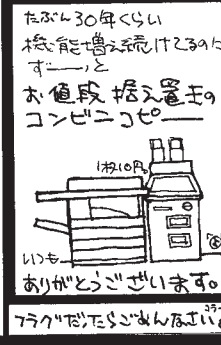 たぶん30年くらい
機能増え続けてるのに
ずーーっと
お値段据え置きの
コンビニコピー
1枚10円。
いつも
ありがとうございます。
フラグだったらごめんなさい。